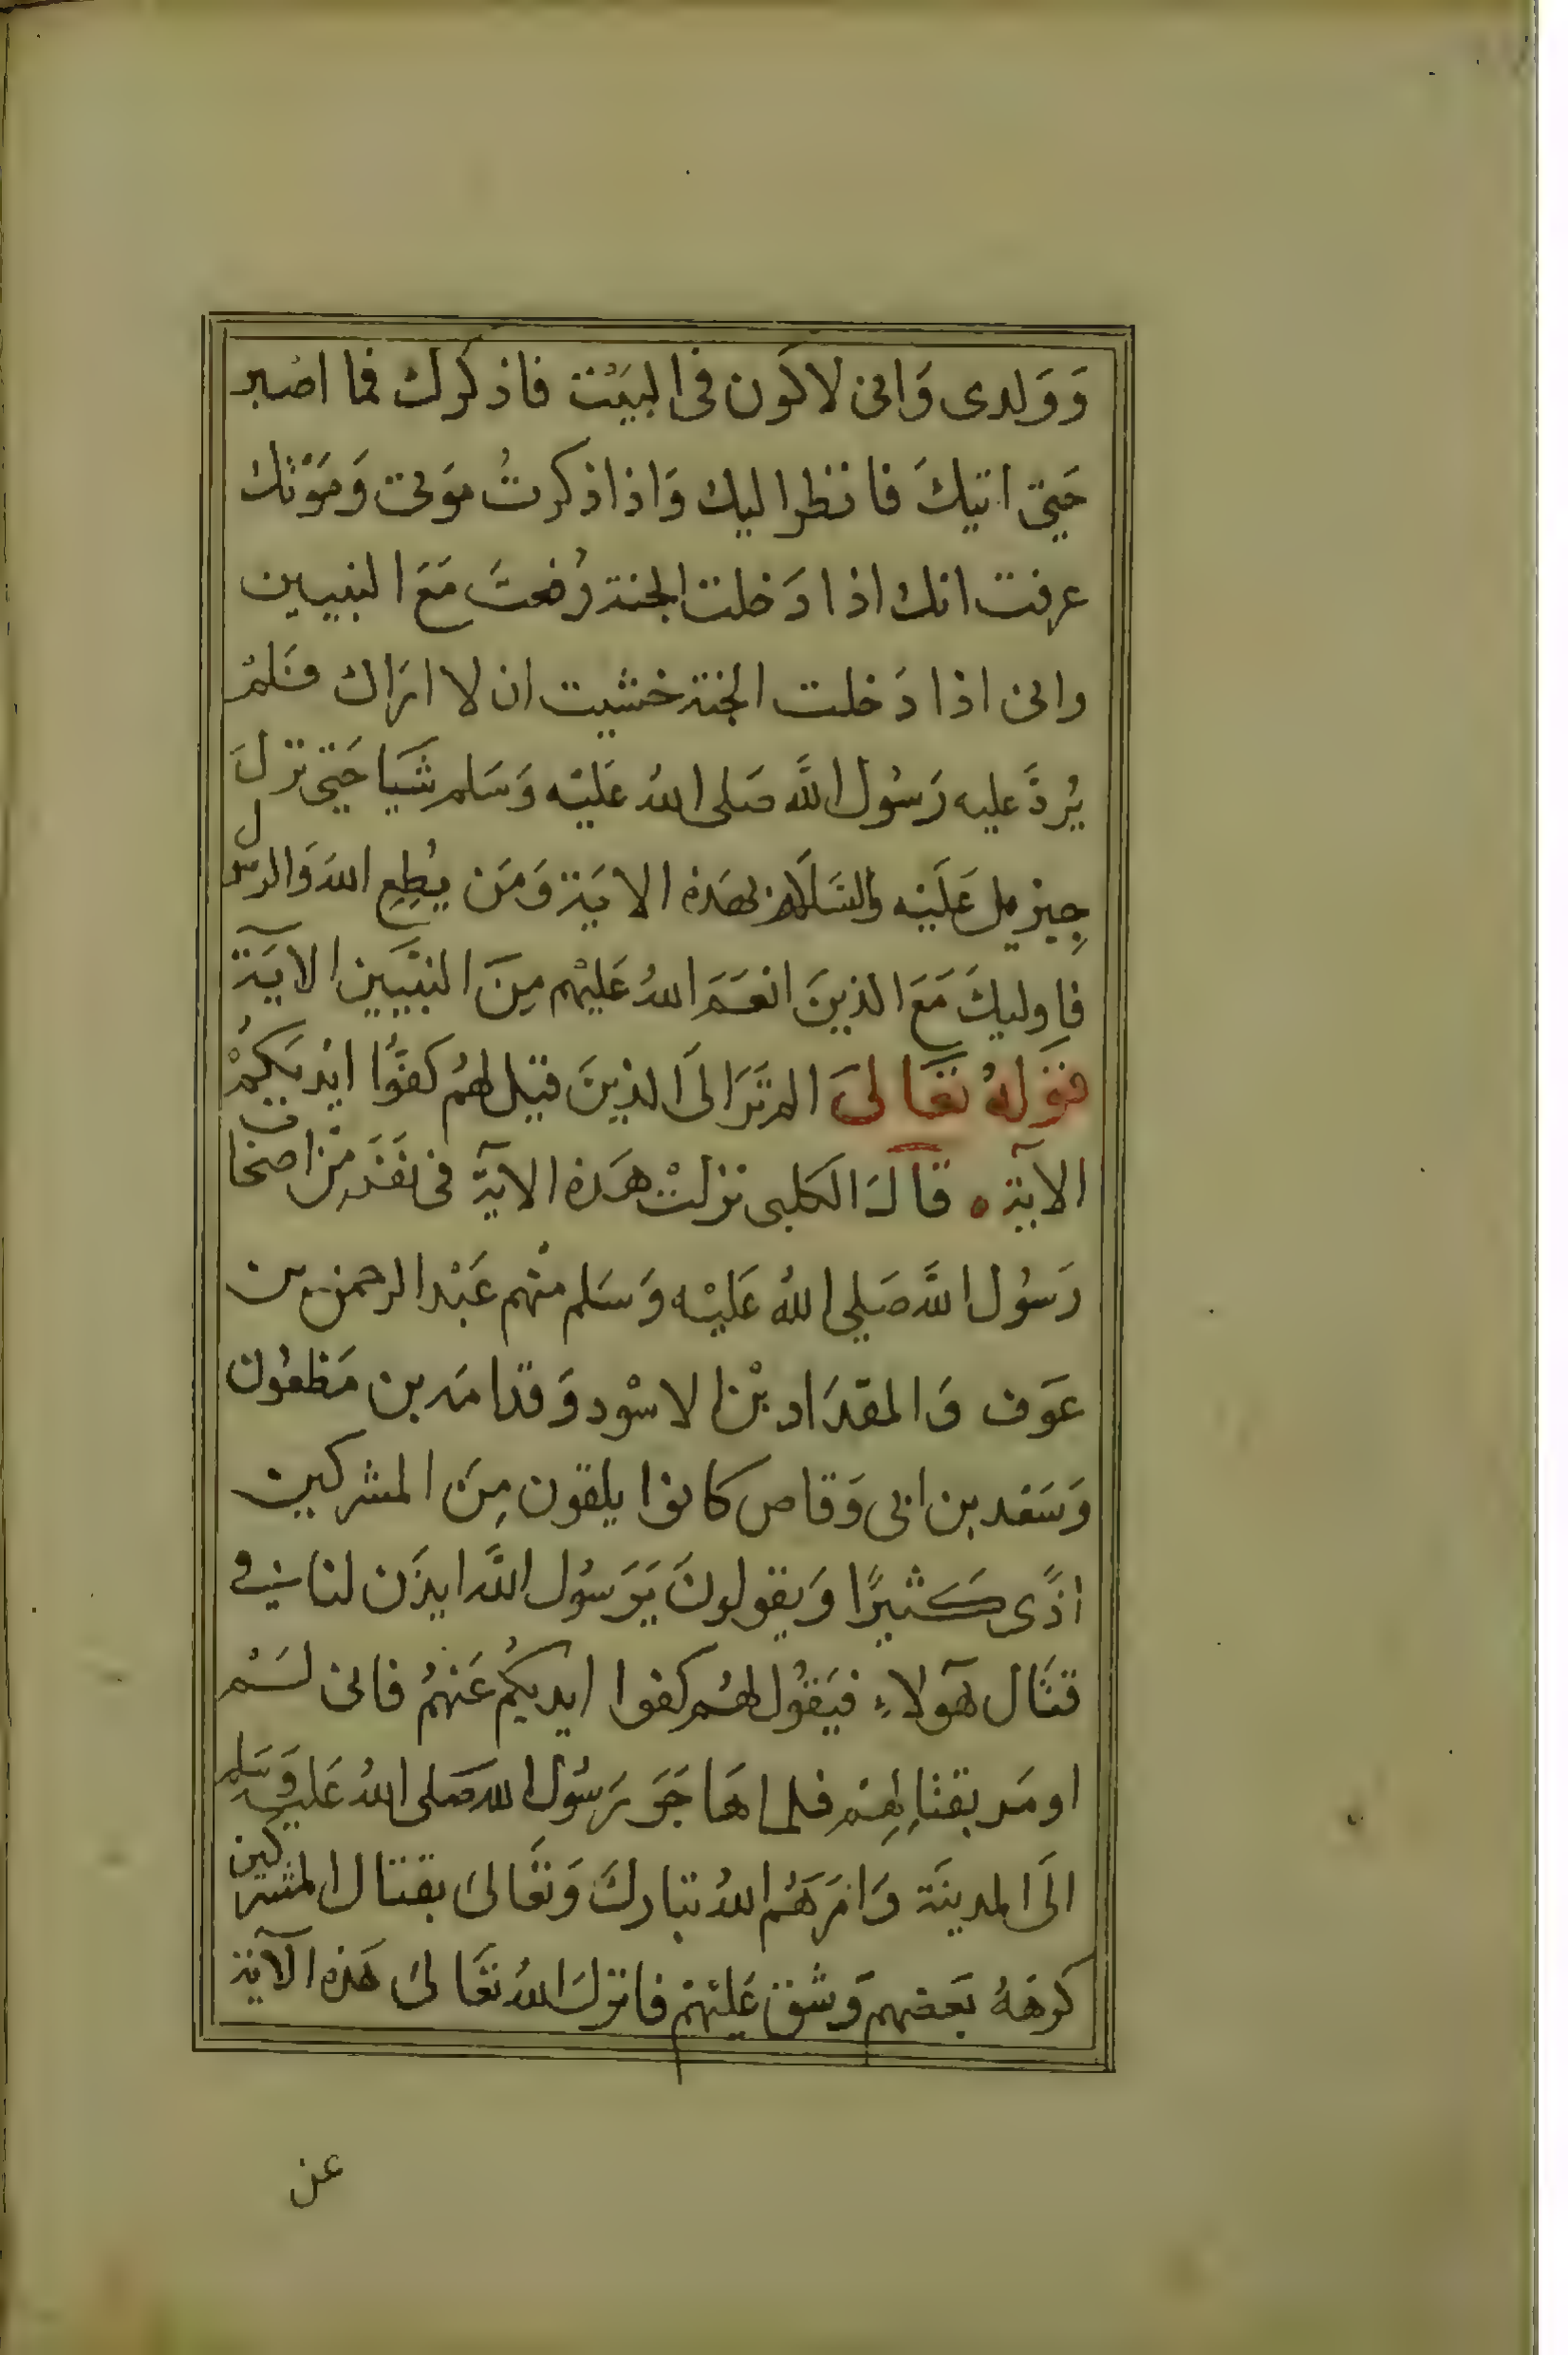 وَوَلدى وَانى لاكون فى البيَتْ فاذكرك فما اصْبر
حَيتى اتيكَ فانظر اليك وَاذا ذكرتُ مَوتى وَمَوْتك
عرفت انك اذا دَخلت الجنة رُفعتَ مَعَ النبيين
وانى اذا دَخلت الجنة خشيت ان لا اراك فَلمْ
يُردَّ عليه رَسُول اللَّه صَلى اللهُ عَليْه وَسَلم شَيَا حَتى نزلَ
جِبريل عَلَيْه والسَلام بهَذه الايَة وَمَن يُطِعِ اللهَ وَالرسول
فاوليكَ مَعَ الذينَ انعَمَ اللهُ عَليْهم مِنَ النبيَّين الايَة
قوَلهُ تعَالىَ المْ ترَ الىَ الذينَ قيل لهُم كفوُّا ايْديَكمُْ
الآية ه قاَلَ الكلبى نزلتْ هَذه الايَة فى نفَر مِّن اصْحاب
رَسُول اللَّه صَلى اللهُ عَليْه وَسَلم منْهم عَبْد الرحمن بن
عَوف وَالمقدَاد بْن الاسْود وَقدامَه بن مَظعُون
وَسَعد بن ابى وَقاص كانوا يلقون مِنَ المشركين
اذًى كَثيرًا وَيقولونَ يَرَسُول اللَّه ايذَن لنا فى
قتَال هَؤلاءِ فيَقوُل لهُم كفوا ايديكُم عَنهمُْ فانى لسَمْ
اومَر بقتالِهِمْ فلما هَاجَرَ رَسُول الله صَلى اللهُ عَليه وَسَلم
الَى المدينَة وَامَرَهُم اللهُ تبَاركَ وَتعَالىَ بقتال المشركين
كرهَهُ بَعضهم وَشق عَليْهمْ فانزلَ اللهُ تعَالىَ هَذه الآية
عن